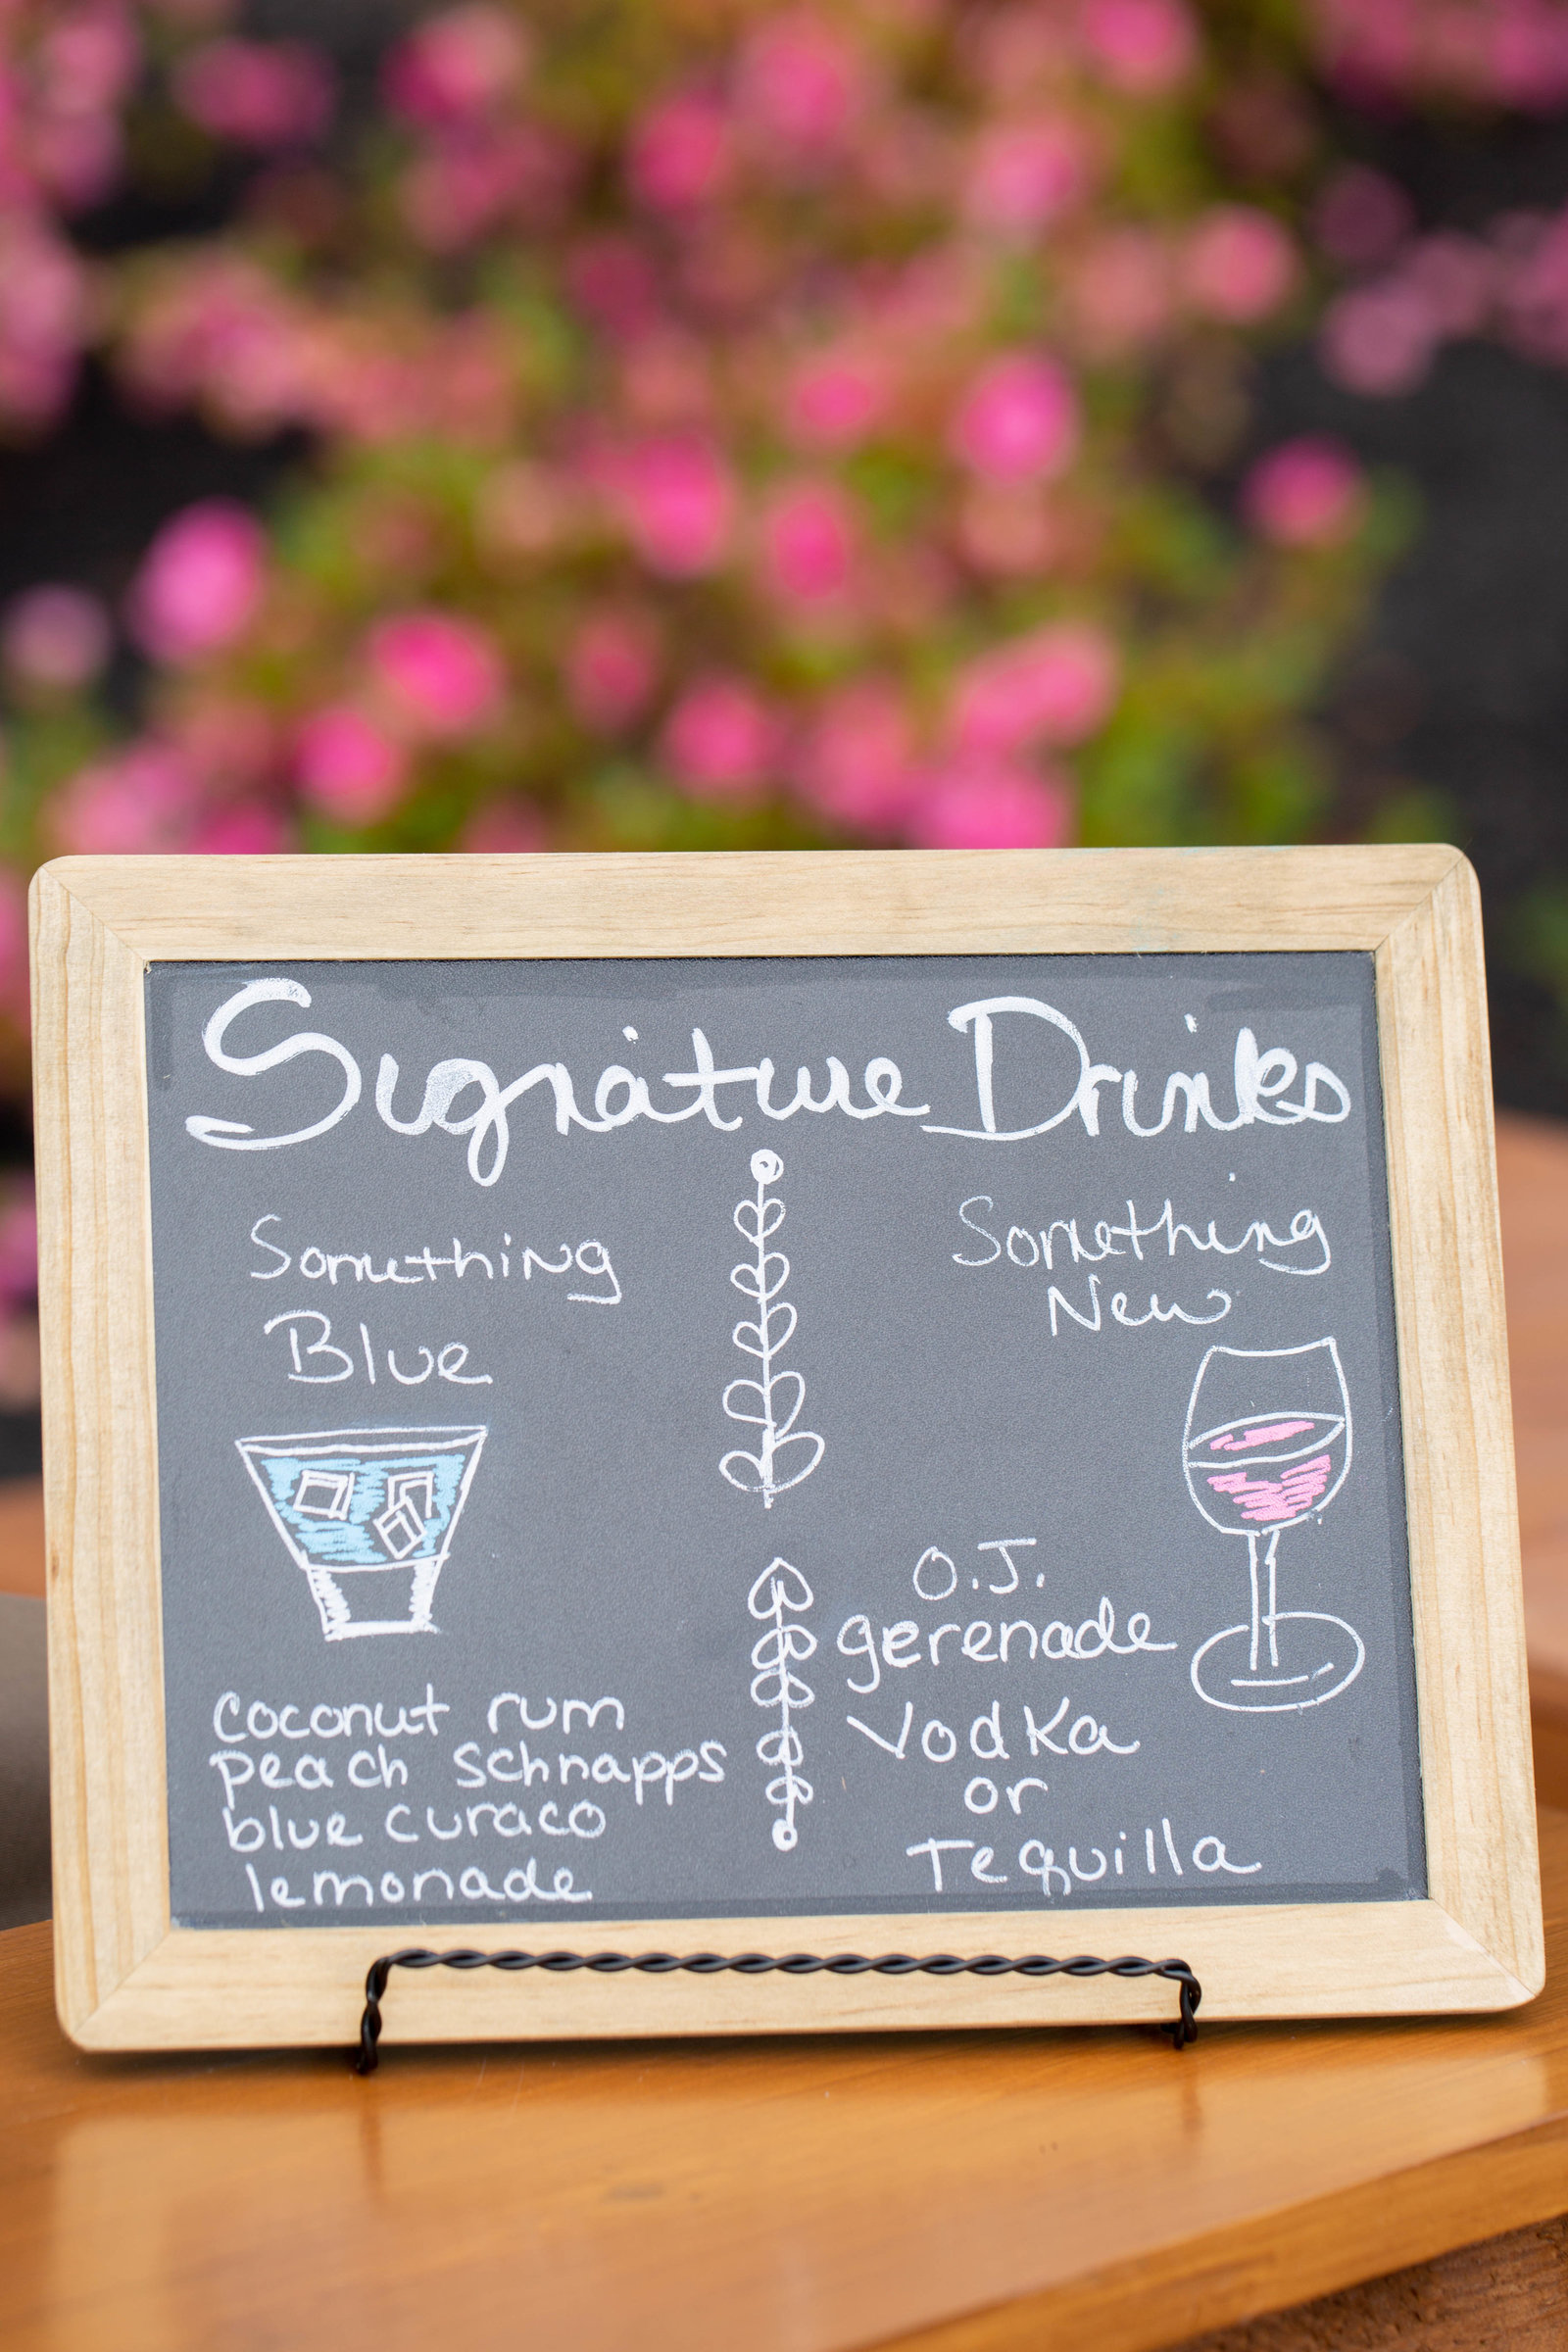 Signature Drinks
Something
Blue
coconut rum
peach schnapps
blue curaco
lemonade
Something
New
O.J.
gerenade
Vodka
or
Tequilla